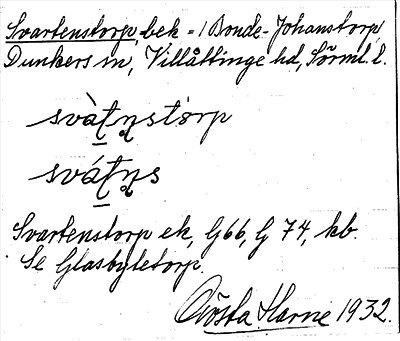 Svartenstorp, bek = / Bonde-Johanstorp/
Dunkers sn, Villåttinge hd, Sörml. l.
svàt̠n̥stòrp
svát̠n̥s
Svartenstorp ek, G66, G 74, kb.
Se Glasbyletorp.
Gösta Harne 1932.